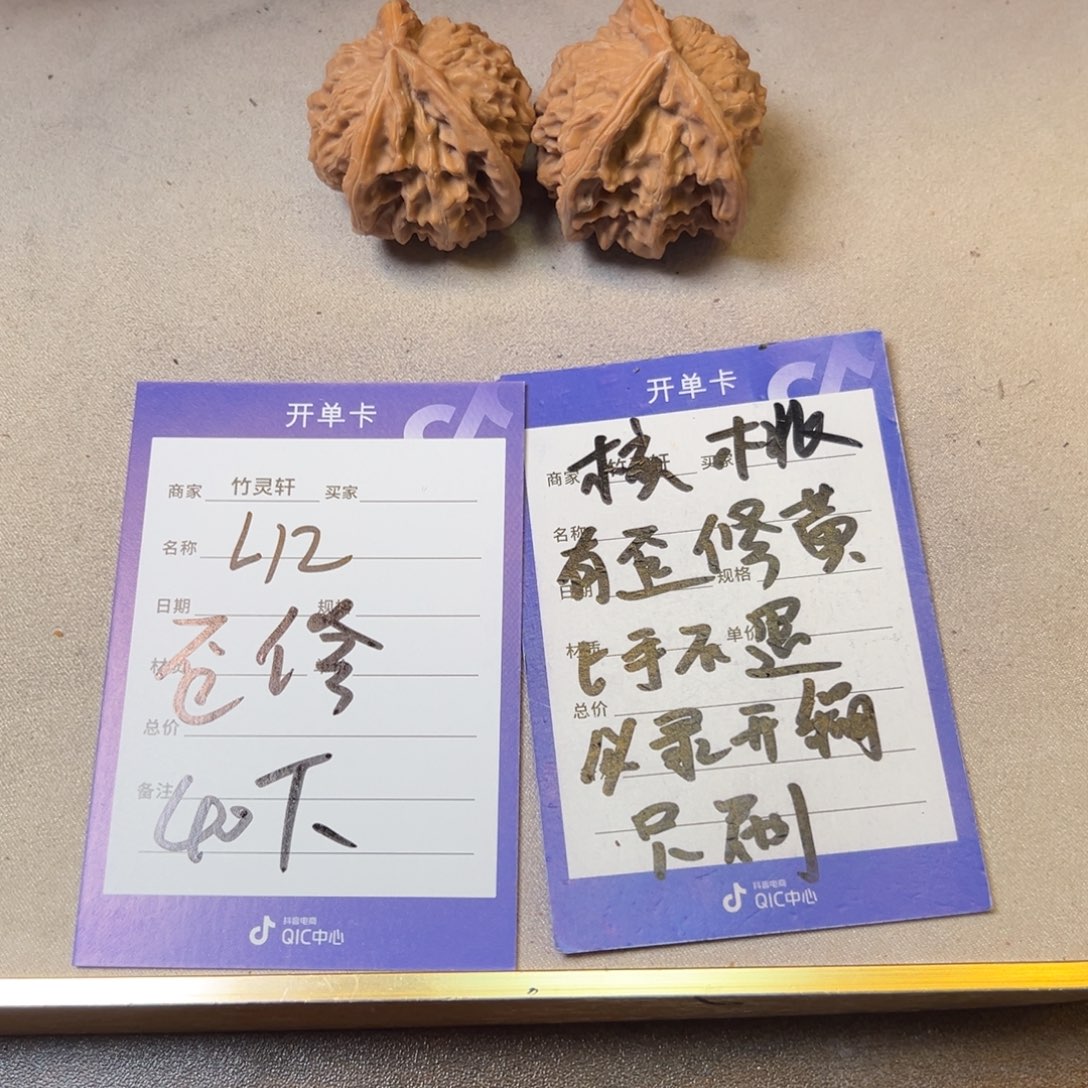 开单卡
商家 竹灵轩 买家
名称 412
日期 规格
苍修
材质
总价
备注 40下
抖音电商
QIC中心
开单卡
核桃
商家 竹灵轩 买家
名称
有歪修黄
日期 规格
上手不退
材质 单价
总价
必录开绷
只刷
抖音电商
QIC中心